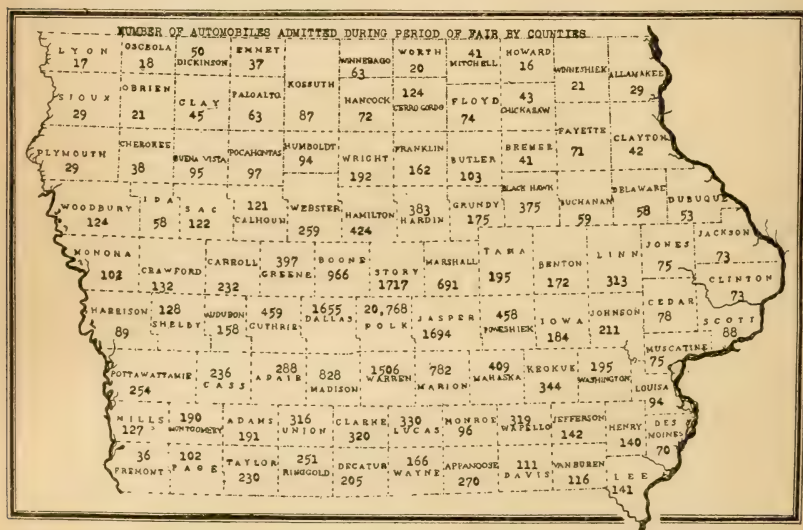 NUMBER OF AUTOMOBILES ADMITTED DURING PERIOD OF FAIR BY COUNTIES
LYON
17
OSCEOLA
18
50
DICKINSON
EMMET
37
WINNEBAGO
63
WORTH
20
41
MITCHELL
HOWARD
16
WINNESHIEK
21
ALLAMAKEE
29
SIOUX
29
OBRIEN
21
CLAY
45
PALOALTO
63
KOSSUTH
87
HANCOCK
72
124
CERRO GORDO
FLOYD
74
43
CHICKASAW
FAYETTE
71
CLAYTON
42
PLYMOUTH
29
CHEROKEE
38
BUENA VISTA
95
POCAHONTAS
97
HUMBOLDT
94
WRIGHT
192
FRANKLIN
162
BUTLER
103
BREMER
41
WOODBURY
124
IDA
58
SAC
122
121
CALHOUN
WEBSTER
259
HAMILTON
424
383
HARDIN
GRUNDY
175
BLACK HAWK
375
BUCHANAN
59
DELAWARE
58
DUBUQUE
53
MONONA
102
CRAWFORD
132
CARROLL
232
397
GREENE
BOONE
966
STORY
1717
MARSHALL
691
TAMA
195
BENTON
172
LINN
313
JONES
75
JACKSON
73
CLINTON
73
HARRISON
89
128
SHELBY
AUDUBON
158
459
GUTHRIE
1655
DALLAS
20,768
POLK
JASPER
1694
458
POWESHIEK
IOWA
184
JOHNSON
211
CEDAR
78
SCOTT
88
MUSCATINE
75
POTTAWATTAMIE
254
236
CASS
288
ADAIR
828
MADISON
1506
WARREN
782
MARION
409
MAHASKA
KEOKUK
344
195
WASHINGTON
LOUISA
94
MILLS
127
190
MONTGOMERY
ADAMS
191
316
UNION
CLARKE
320
330
LUCAS
MONROE
96
319
WAPELLO
JEFFERSON
142
HENRY
140
DES
MOINES
70
36
FREMONT
102
PAGE
TAYLOR
230
251
RINGGOLD
DECATUR
205
166
WAYNE
APPANOOSE
270
111
DAVIS
VANBUREN
116
LEE
141